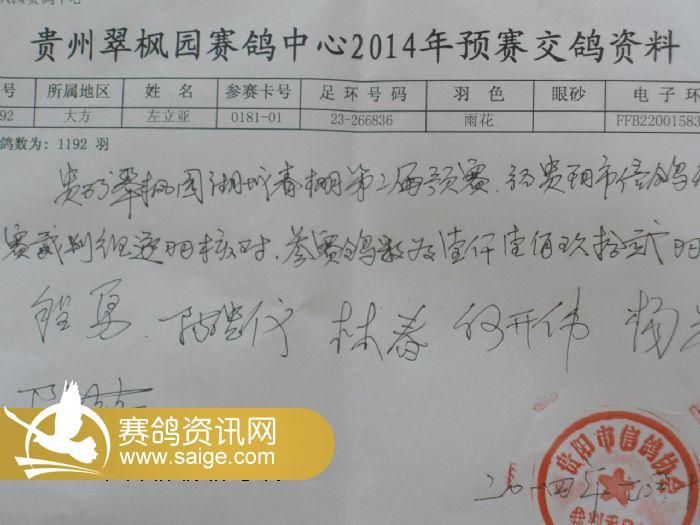 贵州翠枫园赛鸽中心2014年预赛交鸽资料
号 所属地区 姓 名 参赛卡号 足 环 号 码 羽 色 眼砂 电 子 环
92 大方 左立亚 0181-01 23-266836 雨花 FFB22001583
鸽数为: 1192 羽
贵州翠枫园湖城春棚第二届预赛、经贵阳市信鸽
赛裁判组逐羽核对,参赛鸽数为壹仟壹佰玖拾贰羽
程勇 林春 何开伟 杨
赛鸽资讯网
www.saige.com
贵阳市信鸽协会
二0一四年